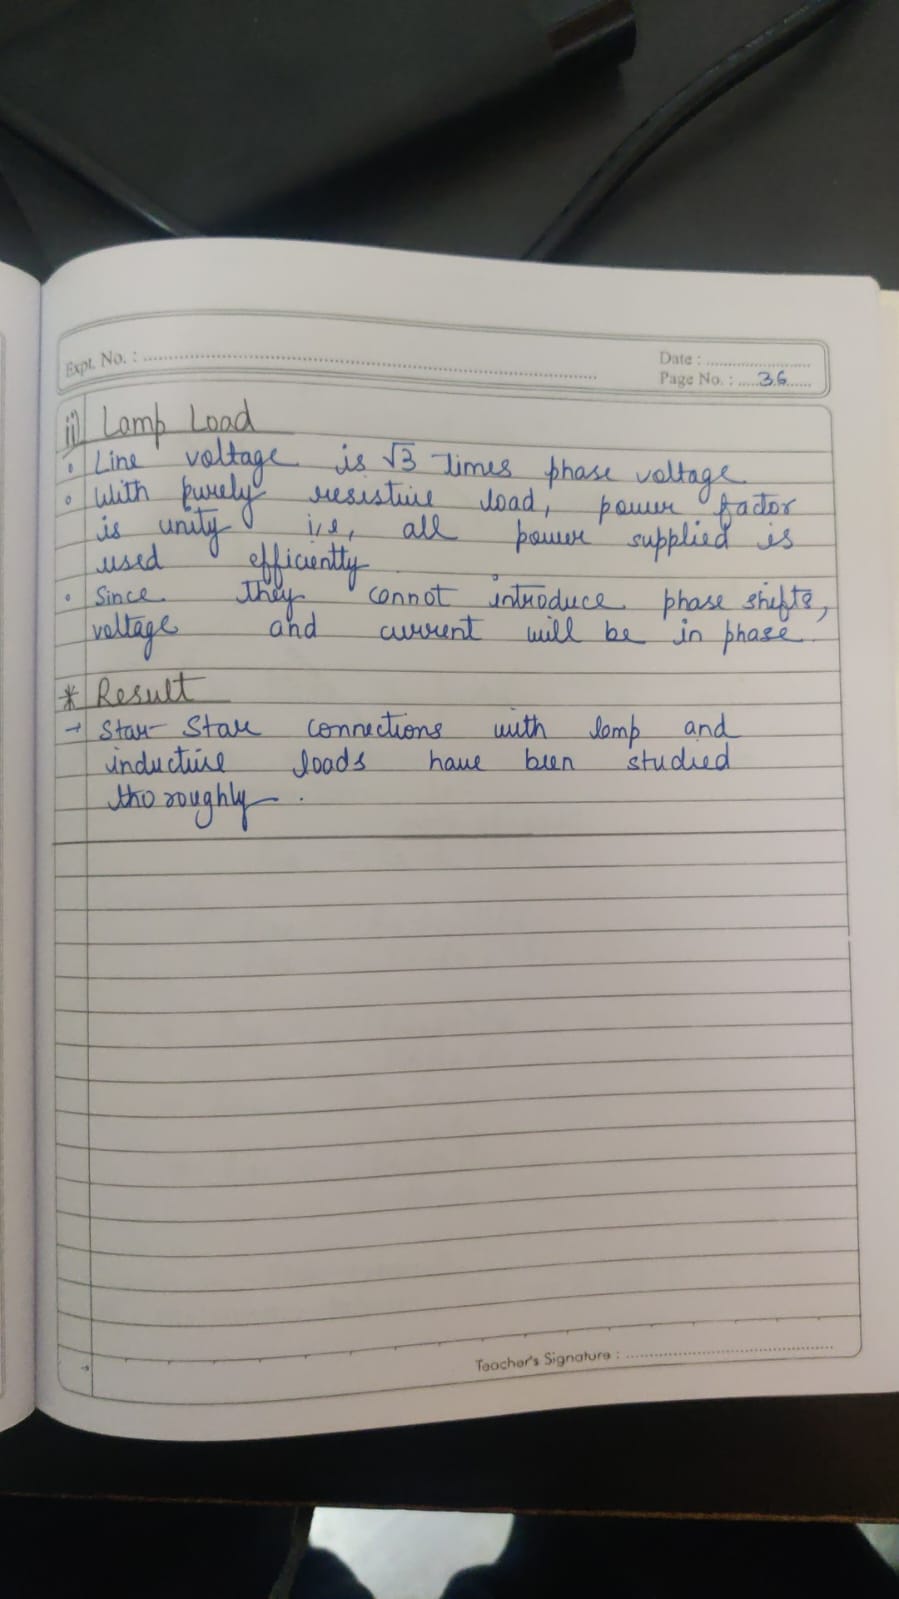 Expt. No. :
Date :
Page No. : 36
ii) Lamp Load
• Line voltage is √3 Times phase voltage
• With purely resistive load, power factor
is unity i.e, all power supplied is
used efficiently
• Since they cannot introduce phase shifts,
voltage and current will be in phase.
* Result
→ Star-Star connections with lamp and
inductive loads have been studied
thoroughly.
Teacher's Signature :